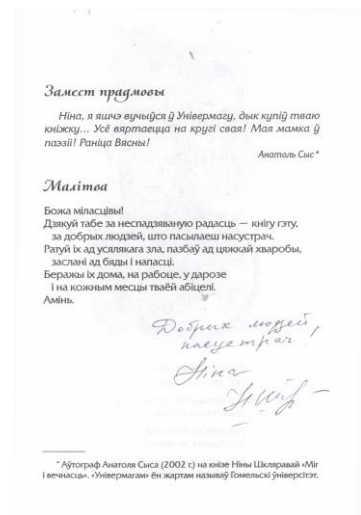 Замест прадмовы
Ніна, я яшчэ вучыўся ў Універмагу, дык купіў тваю
кніжку... Усё вяртаецца на кругі свая! Мая мамка ў
паэзіі! Раніца Вясны!
Анатоль Сыс*
Малітва
Божа міласцівы!
Дзякуй табе за неспадзяваную радасць — кнігу гэту,
за добрых людзей, што пасылаеш насустрач.
Ратуй іх ад усялякага зла, пазбаў ад цяжкай хваробы,
заслані ад бяды і напасці.
Беражы іх дома, на рабоце, у дарозе
і на кожным месцы тваёй абіцелі.
Амінь.
Добрых людзей,
насустрач
Ніна
* Аўтограф Анатоля Сыса (2002 г.) на кнізе Ніны Шкляравай «Міг
і вечнасць». «Універмагам» ён жартам называў Гомельскі ўніверсітэт.